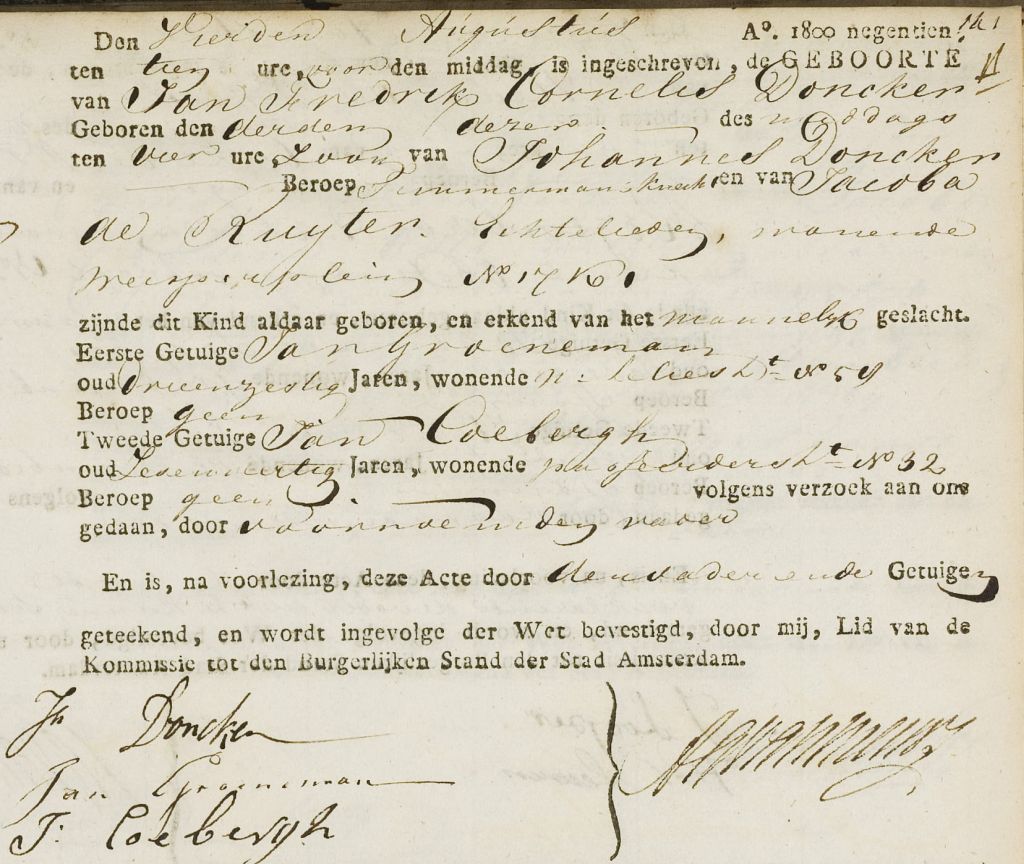 Den Vierden Augustus Aº. 1800 negentien
ten tien ure, voor den middag, is ingeschreven, de GEBOORTE
van Jan Fredrik Cornelis Doncker
Geboren den derden dezer des middags
ten vier ure Zoon van Johannes Doncker
Beroep Timmermansknecht en van Jacoba
de Ruyter. Echtelieden, wonende
Weesperplein Nº 17 K 1
zijnde dit Kind aldaar geboren, en erkend van het mannelyk geslacht.
Eerste Getuige Jan Groeneman
oud Drieenzestig Jaren, wonende Nº 59
Beroep geen
Tweede Getuige Jan Coebergh
oud Zesenveertig Jaren, wonende Nº 32
Beroep geen. volgens verzoek aan ons
gedaan, door voornoemden vader
En is, na voorlezing, deze Acte door den vader ende Getuigen
geteekend, en wordt ingevolge der Wet bevestigd, door mij, Lid van de
Kommissie tot den Burgerlijken Stand der Stad Amsterdam.
Jn Doncker
Jan Groeneman
J: Coebergh